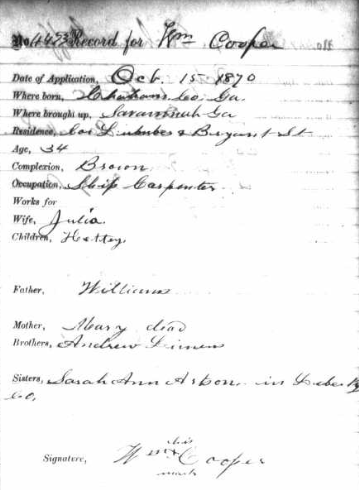 No 4453 Record for Wm Cooper
Date of Application, Oct. 15 1870
Where born, Chatham Co. Ga.
Where brought up, Savannah Ga
Residence, Cor & Bryant St
Age, 34
Complexion, Brown
Occupation, Ship Carpenter
Works for
Wife, Julia.
Children, Hettey,
Father, William
Mother, Mary dead
Brothers, Andrew
Sisters, Sarah Ann in
Co,
his
Signature, Wm Cooper
mark